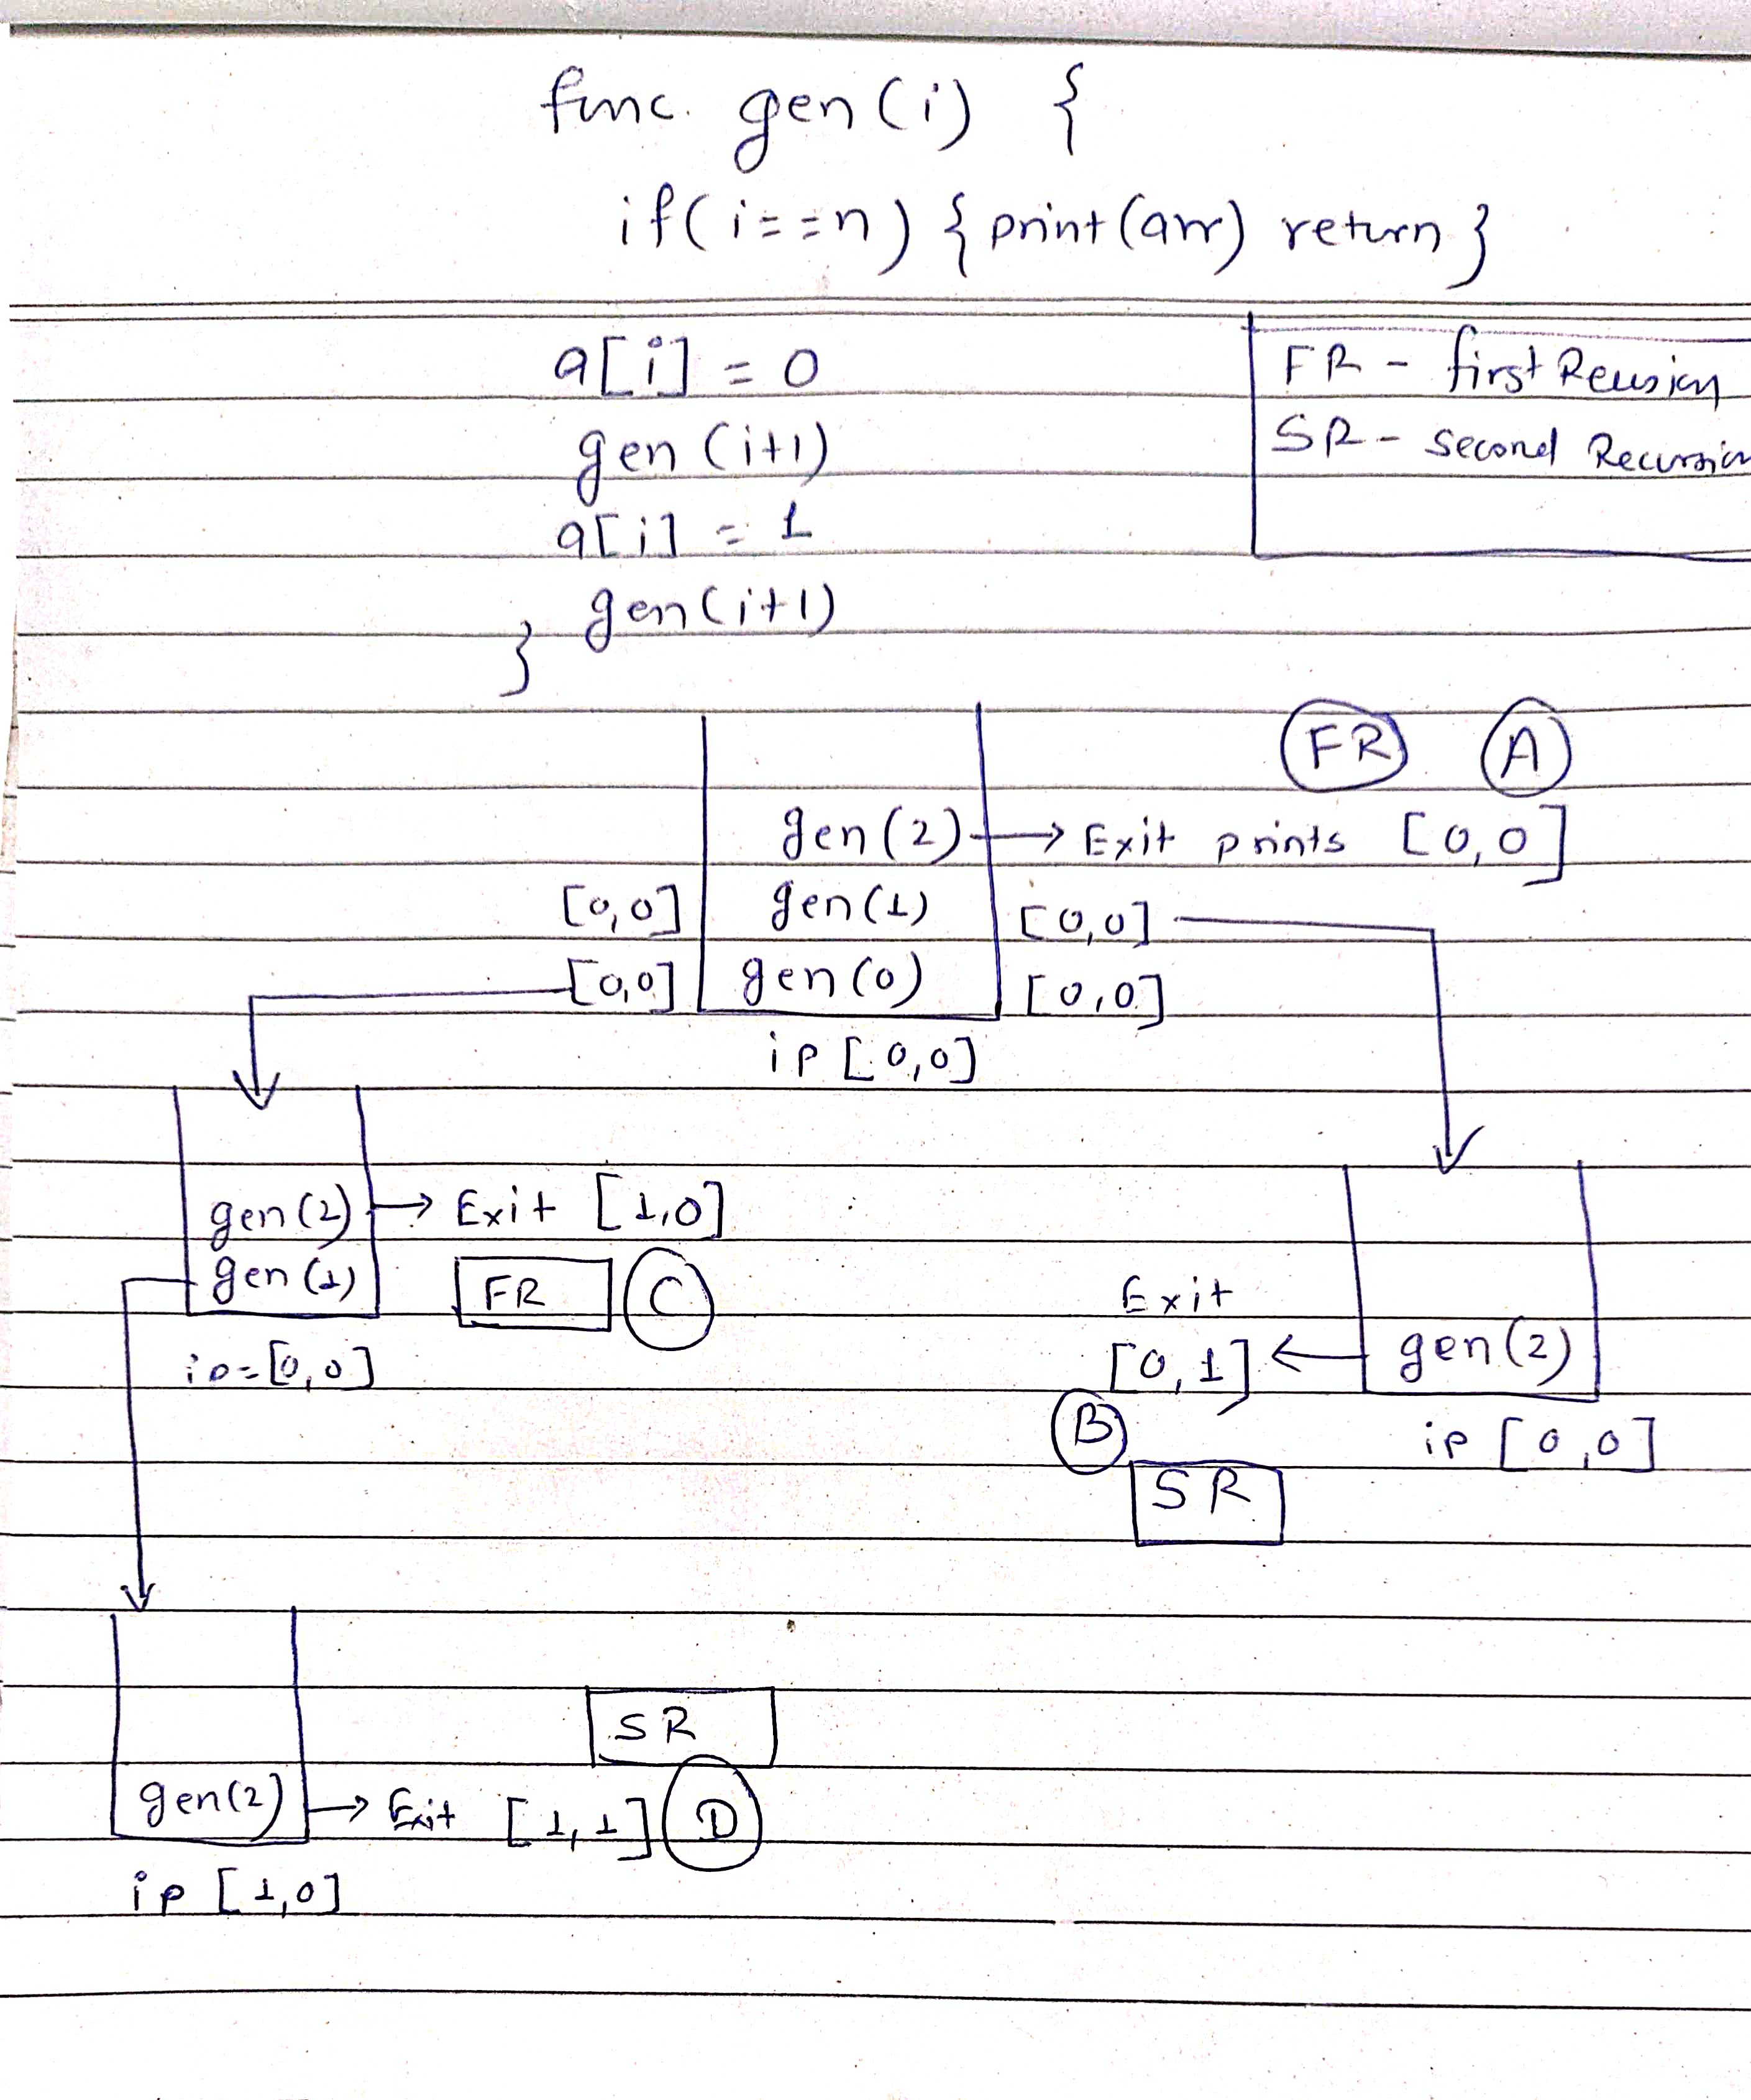 func. gen(i) {
if(i==n) { print(arr) return }
a[i] = 0
gen(i+1)
a[i] = 1
gen(i+1)
}
FR - first Reusion
SR - Second Recursion
FR A
gen(2) → Exit prints [0,0]
[0,0] gen(1) [0,0]
[0,0] gen(0) [0,0]
ip [0,0]
gen(2) → Exit [1,0]
gen(1) FR C
ip=[0,0]
Exit
[0,1] ← gen(2)
B ip [0,0]
SR
SR
gen(2) → Exit [1,1] D
ip [1,0]